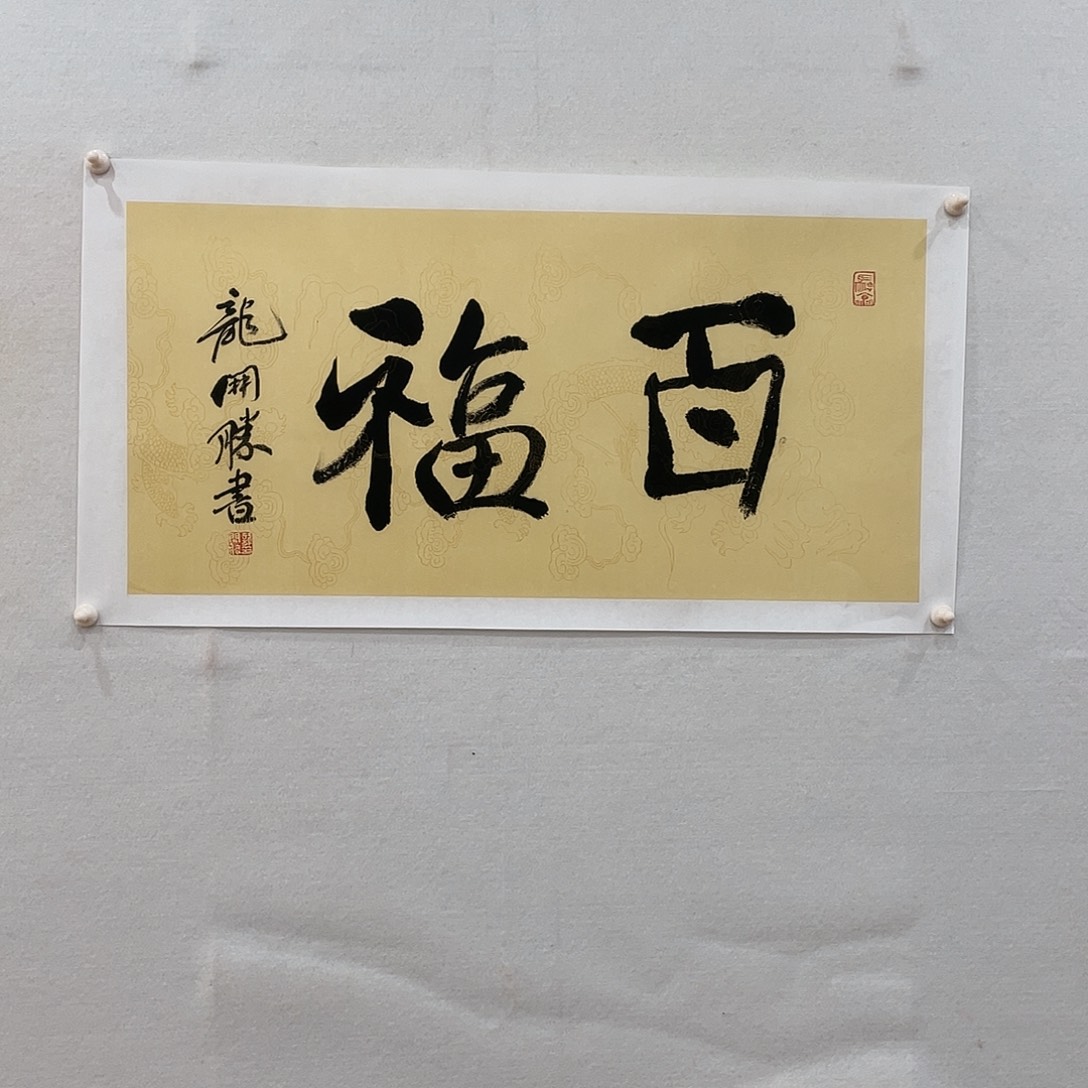 百福
龍開勝書